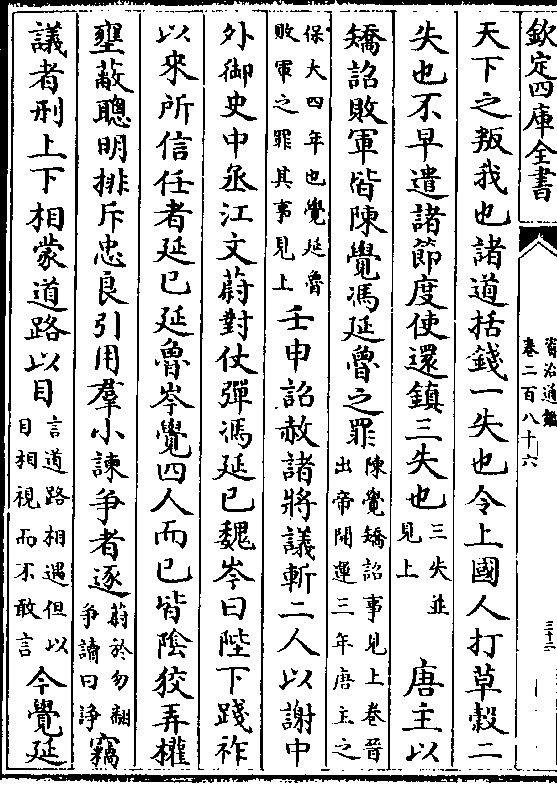 欽定四庫全書
資治通鑑
卷二百八十六
三十二
天下之叛我也諸道括錢一失也令上國人打草穀二
失也不早遣諸節度使還鎮三失也三失並
見上唐主以
矯詔敗軍皆陳覺馮延魯之罪陳覺矯詔事見上卷晉
出帝開運三年唐主之
保大四年也覺延魯
敗軍之罪其事見上壬申詔赦諸將議斬二人以謝中
外御史中丞江文蔚對仗彈馮延巳魏岑曰陛下踐祚
以來所信任者延巳延魯岑覺四人而已皆陰狡弄權
壅蔽聰明排斥忠良引用羣小諫爭者逐蔚於勿翻
爭讀曰諍竊
議者刑上下相蒙道路以目言道路相遇但以
目相視而不敢言今覺延